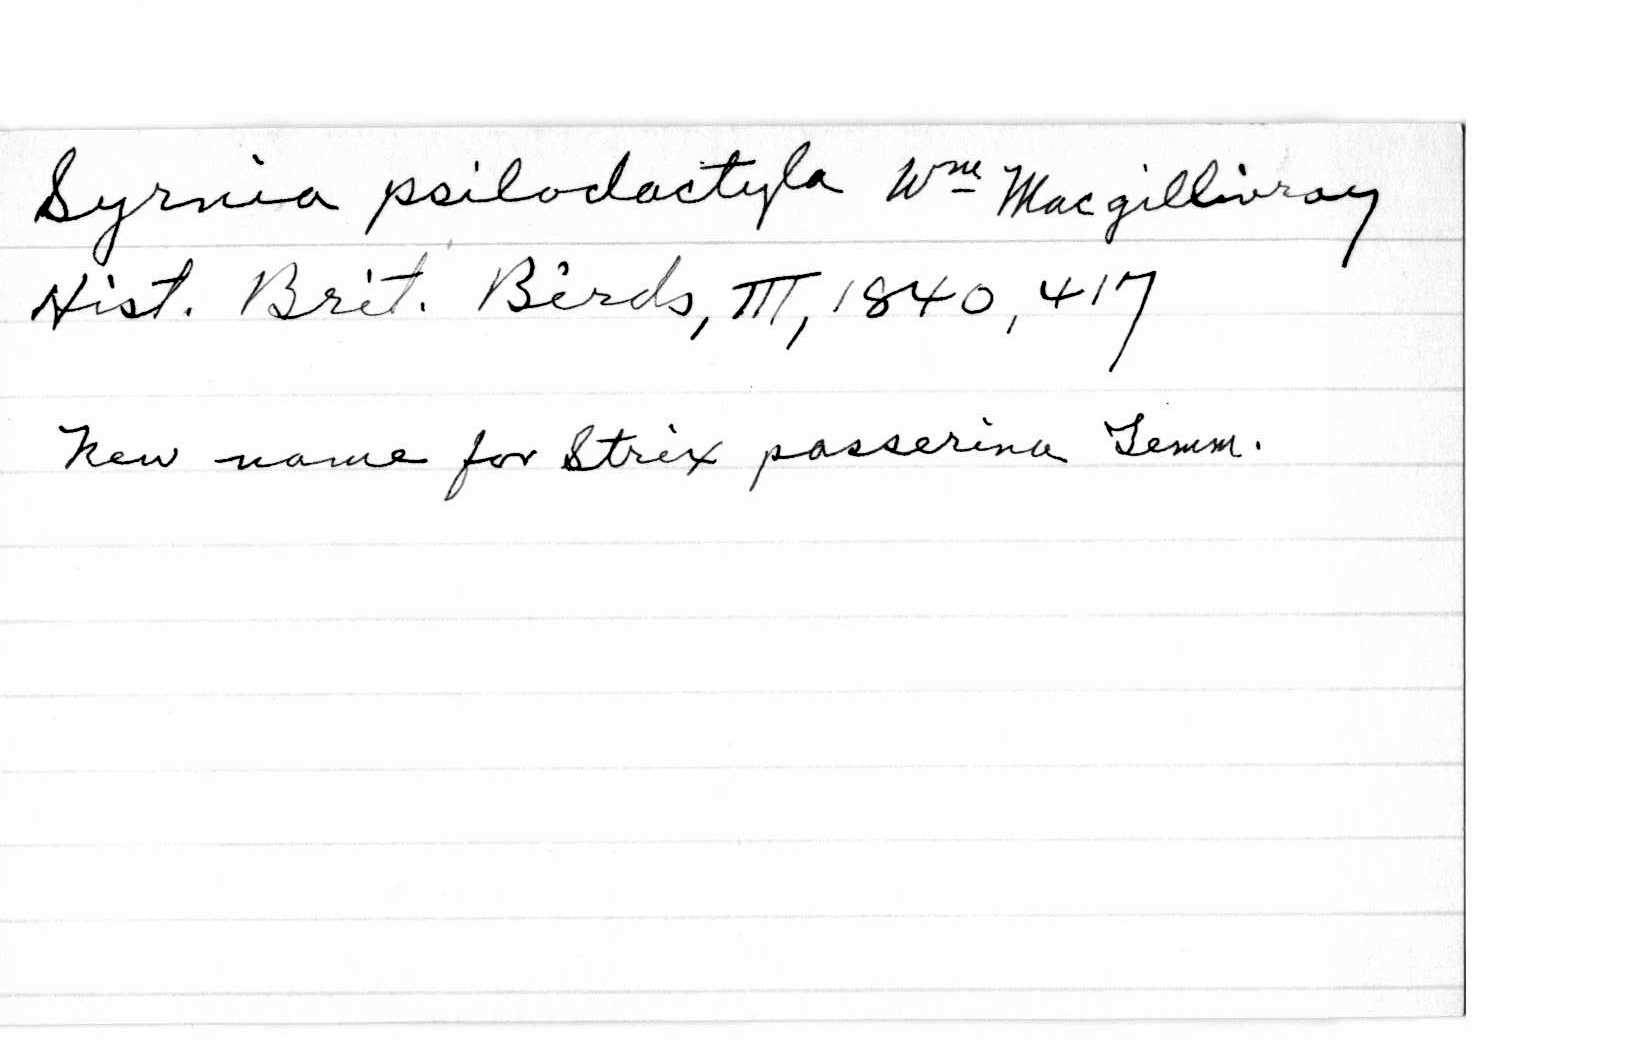 Syrnia psilodactyla Wm Macgillivray
Hist. Brit. Birds, III, 1840, 417
New name for Strix passerina Temm.